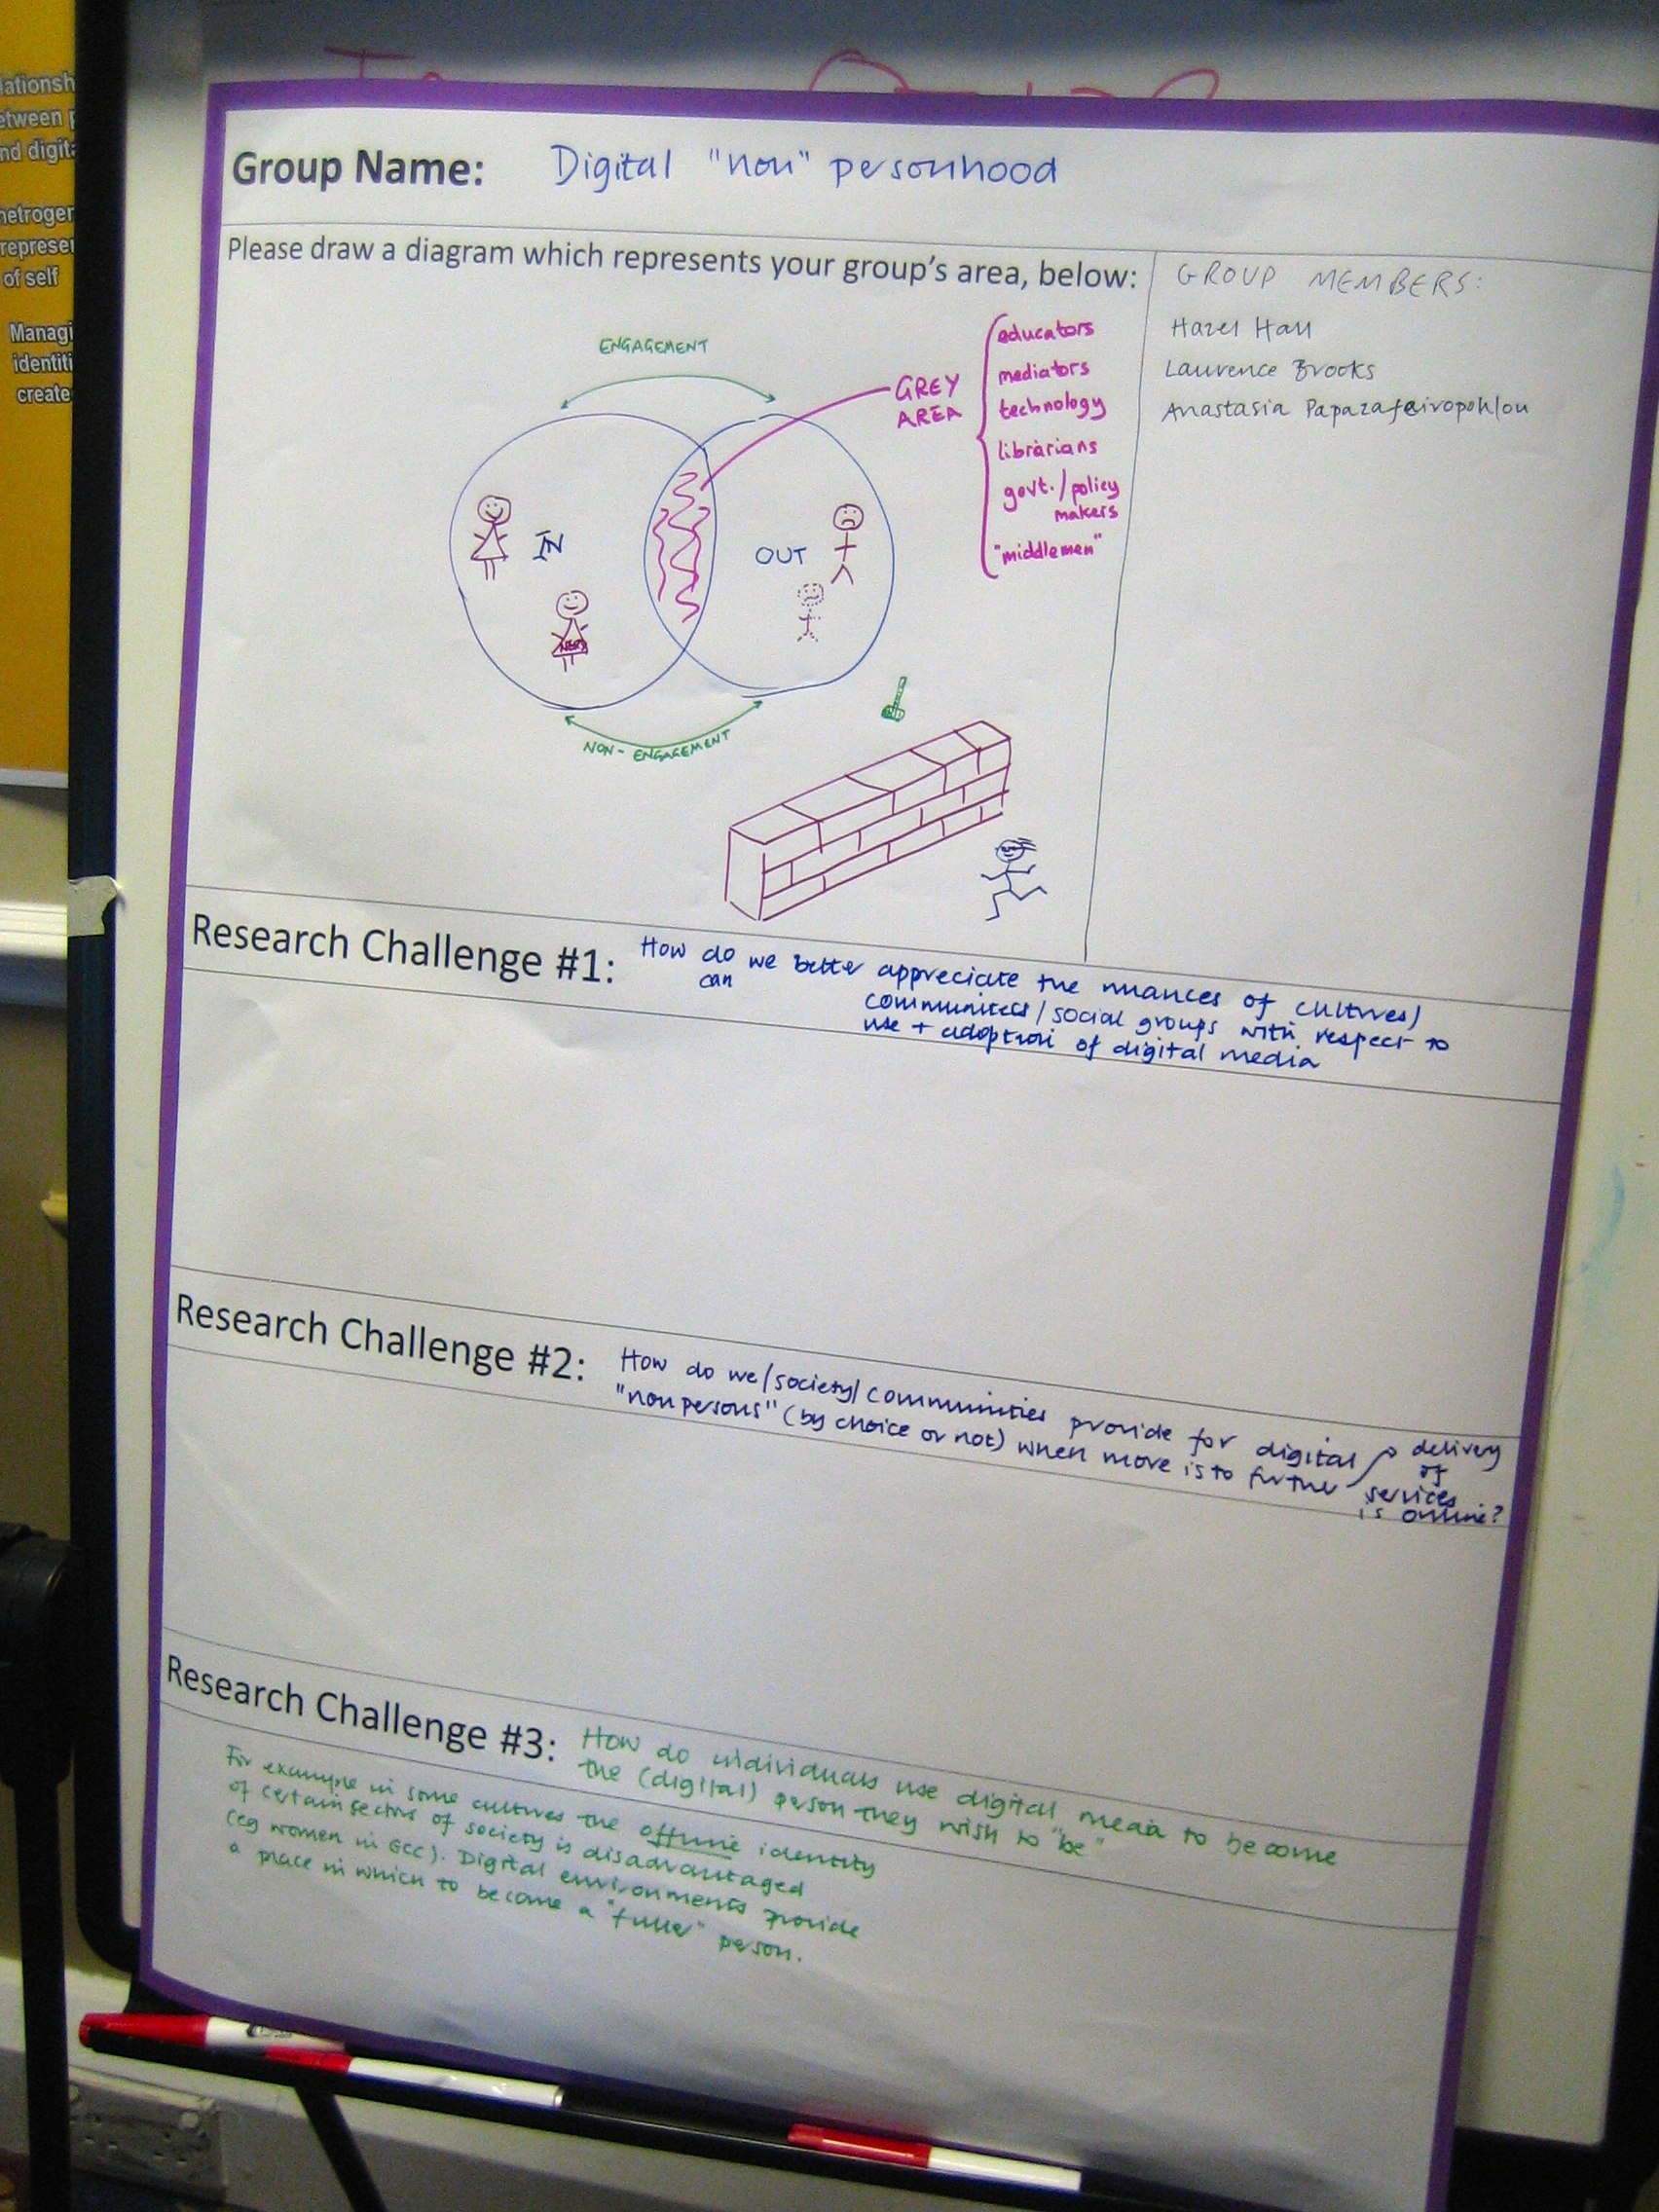 lationsh
etween p
nd digita
hetroger
represer
of self
Managi
identiti
create
Group Name: Digital "non" personhood
Please draw a diagram which represents your group's area, below:
GROUP MEMBERS:
Hazel Hall
Laurence Brooks
Anastasia
ENGAGEMENT
GREY
AREA
educators
mediators
technology
librarians
govt./policy
makers
"middlemen"
IN
OUT
NON-ENGAGEMENT
Research Challenge #1: How do we better appreciate the nuances of cultures/
can
communities/social groups with respect to
use + adoption of digital media
Research Challenge #2: How do we/society/communities provide for digital
"non persons" (by choice or not) when move is to further
delivery
of
services
is online?
Research Challenge #3: How do individuals use digital media to become
the (digital) person they wish to "be"
For example in some cultures the offline identity
of certain sectors of society is disadvantaged
(eg women in GCC). Digital environments provide
a place in which to become a "fuller" person.